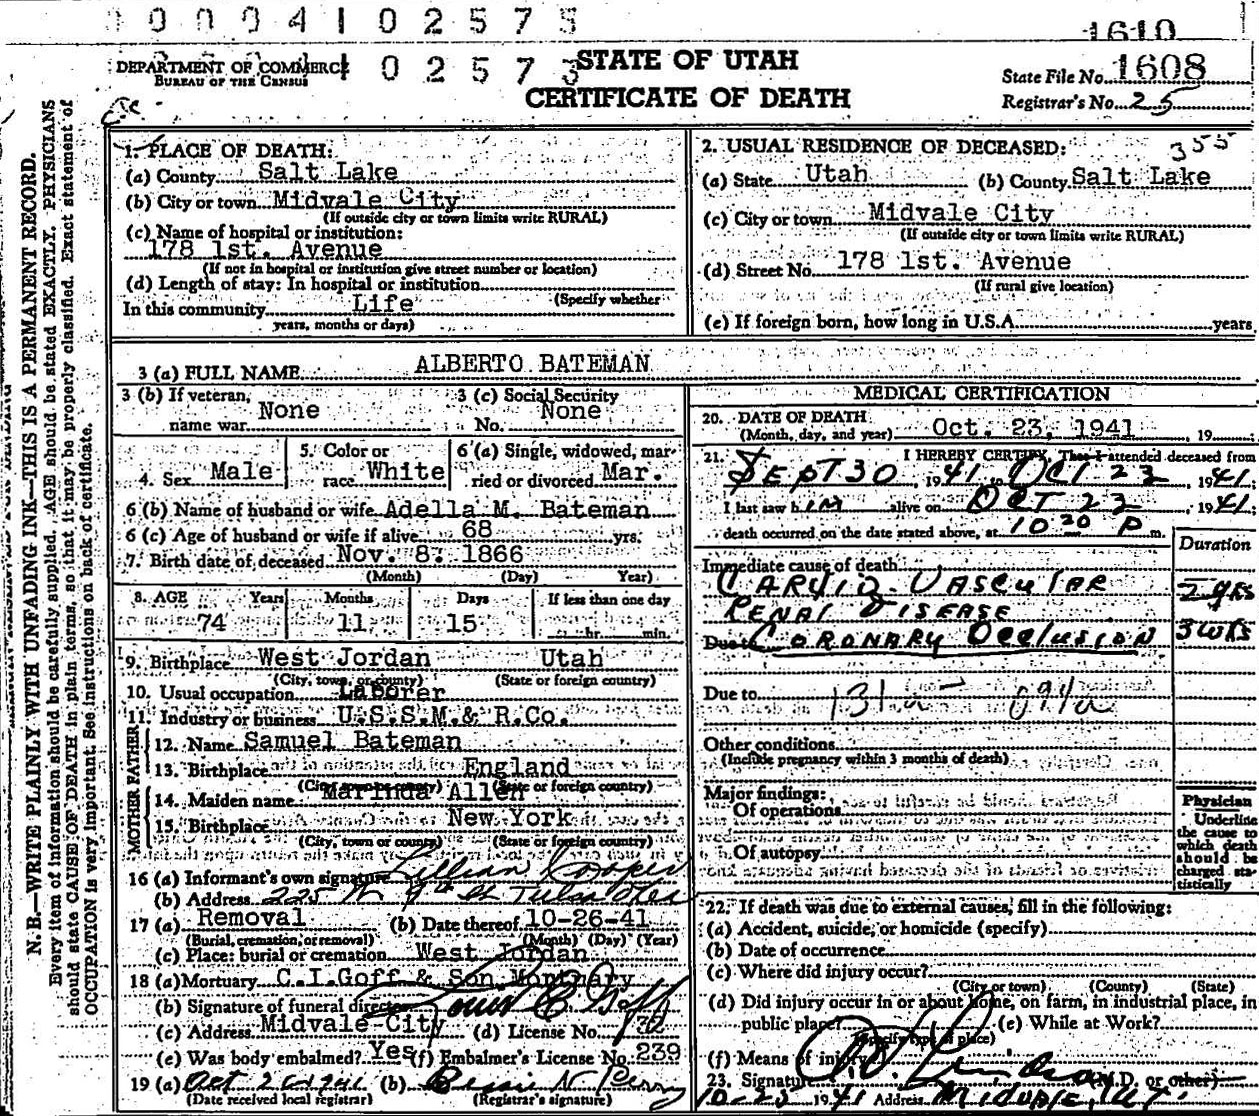 0 0 0 4 1 0 2 5 7 5
1610
DEPARTMENT OF COMMERCE
BUREAU OF THE CENSUS
0 2 5 7 3
STATE OF UTAH
CERTIFICATE OF DEATH
State File No. 1608
Registrar's No. 25
N. B.—WRITE PLAINLY WITH UNFADING INK—THIS IS A PERMANENT RECORD.
Every item of information should be carefully supplied. AGE should be stated EXACTLY. PHYSICIANS
should state CAUSE OF DEATH in plain terms, so that it may be properly classified. Exact statement of
OCCUPATION is very important. See instructions on back of certificate.
1. PLACE OF DEATH:
(a) County Salt Lake
(b) City or town Midvale City
(If outside city or town limits write RURAL)
(c) Name of hospital or institution:
178 1st. Avenue
(If not in hospital or institution give street number or location)
(d) Length of stay: In hospital or institution
(Specify whether
In this community Life
years, months or days)
2. USUAL RESIDENCE OF DECEASED: 355
(a) State Utah (b) County Salt Lake
(c) City or town Midvale City
(If outside city or town limits write RURAL)
(d) Street No. 178 1st. Avenue
(If rural give location)
(e) If foreign born, how long in U.S.A. years
3 (a) FULL NAME ALBERTO BATEMAN
3 (b) If veteran, name war None
3 (c) Social Security No. None
4. Sex Male
5. Color or race White
6 (a) Single, widowed, married or divorced Mar.
6 (b) Name of husband or wife Adella M. Bateman
6 (c) Age of husband or wife if alive 68 yrs.
7. Birth date of deceased Nov. 8. 1866
(Month) (Day) Year)
8. AGE Years Months Days If less than one day
74 11 15 hr. min.
9. Birthplace West Jordan Utah
(City, town, or county) (State or foreign country)
10. Usual occupation Laborer
11. Industry or business U.S.S.M.& R.Co.
FATHER
12. Name Samuel Bateman
13. Birthplace England
(City, town or county) (State or foreign country)
MOTHER
14. Maiden name Marinda Allen
15. Birthplace New York
(City, town or county) (State or foreign country)
16 (a) Informant's own signature Lillian Cooper
(b) Address 225
17 (a) Removal (b) Date thereof 10-26-41
(Burial, cremation, or removal) (Month) (Day) (Year)
(c) Place: burial or cremation West Jordan
18 (a) Mortuary C.I.Goff & Son Mortuary
(b) Signature of funeral director Goff
(c) Address Midvale City (d) License No. 72
(e) Was body embalmed? Yes (f) Embalmer's License No. 239
19 (a) Oct 26 1941 (b) Bessie N Perry
(Date received local registrar) (Registrar's signature)
MEDICAL CERTIFICATION
20. DATE OF DEATH
(Month, day, and year) Oct. 23, 1941, 19
21. I HEREBY CERTIFY, That I attended deceased from
SEPT 30, 1941 to OCT 23, 1941;
I last saw him alive on OCT 23, 1941;
death occurred on the date stated above, at 10 20 P m.
Duration
Immediate cause of death
CARDIO-VASCULAR
RENAL DISEASE 2 yRS
Due to CORONARY OCCLUSION 3 WKS
Due to 131a 094a
Other conditions
(Include pregnancy within 3 months of death)
Major findings:
Of operations
Of autopsy
Physician
Underline
the cause to
which death
should be
charged sta-
tistically
22. If death was due to external causes, fill in the following:
(a) Accident, suicide, or homicide (specify)
(b) Date of occurrence
(c) Where did injury occur?
(City or town) (County) (State)
(d) Did injury occur in or about home, on farm, in industrial place, in
public place? (e) While at Work?
(Specify type of place)
(f) Means of injury
23. Signature (M.D. or other)
10-25 1941 Address MIDVALE, UT.